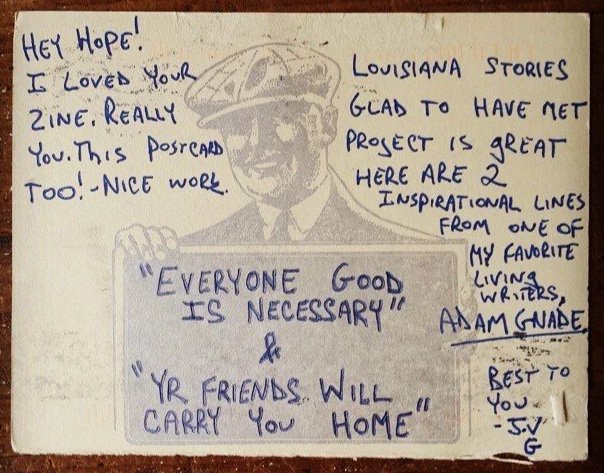 HEY HOPE!
I LOVED YOUR LOUISIANA STORIES
ZINE. REALLY GLAD TO HAVE MET
YOU. THIS POSTCARD PROJECT IS GREAT
TOO! - NICE WORK. HERE ARE 2
INSPIRATIONAL LINES
FROM ONE OF
MY FAVORITE
LIVING
WRITERS,
ADAM GNADE.
"EVERYONE GOOD
IS NECESSARY"
&
"YR FRIENDS WILL
CARRY YOU HOME"
BEST TO
YOU
- J.V
G